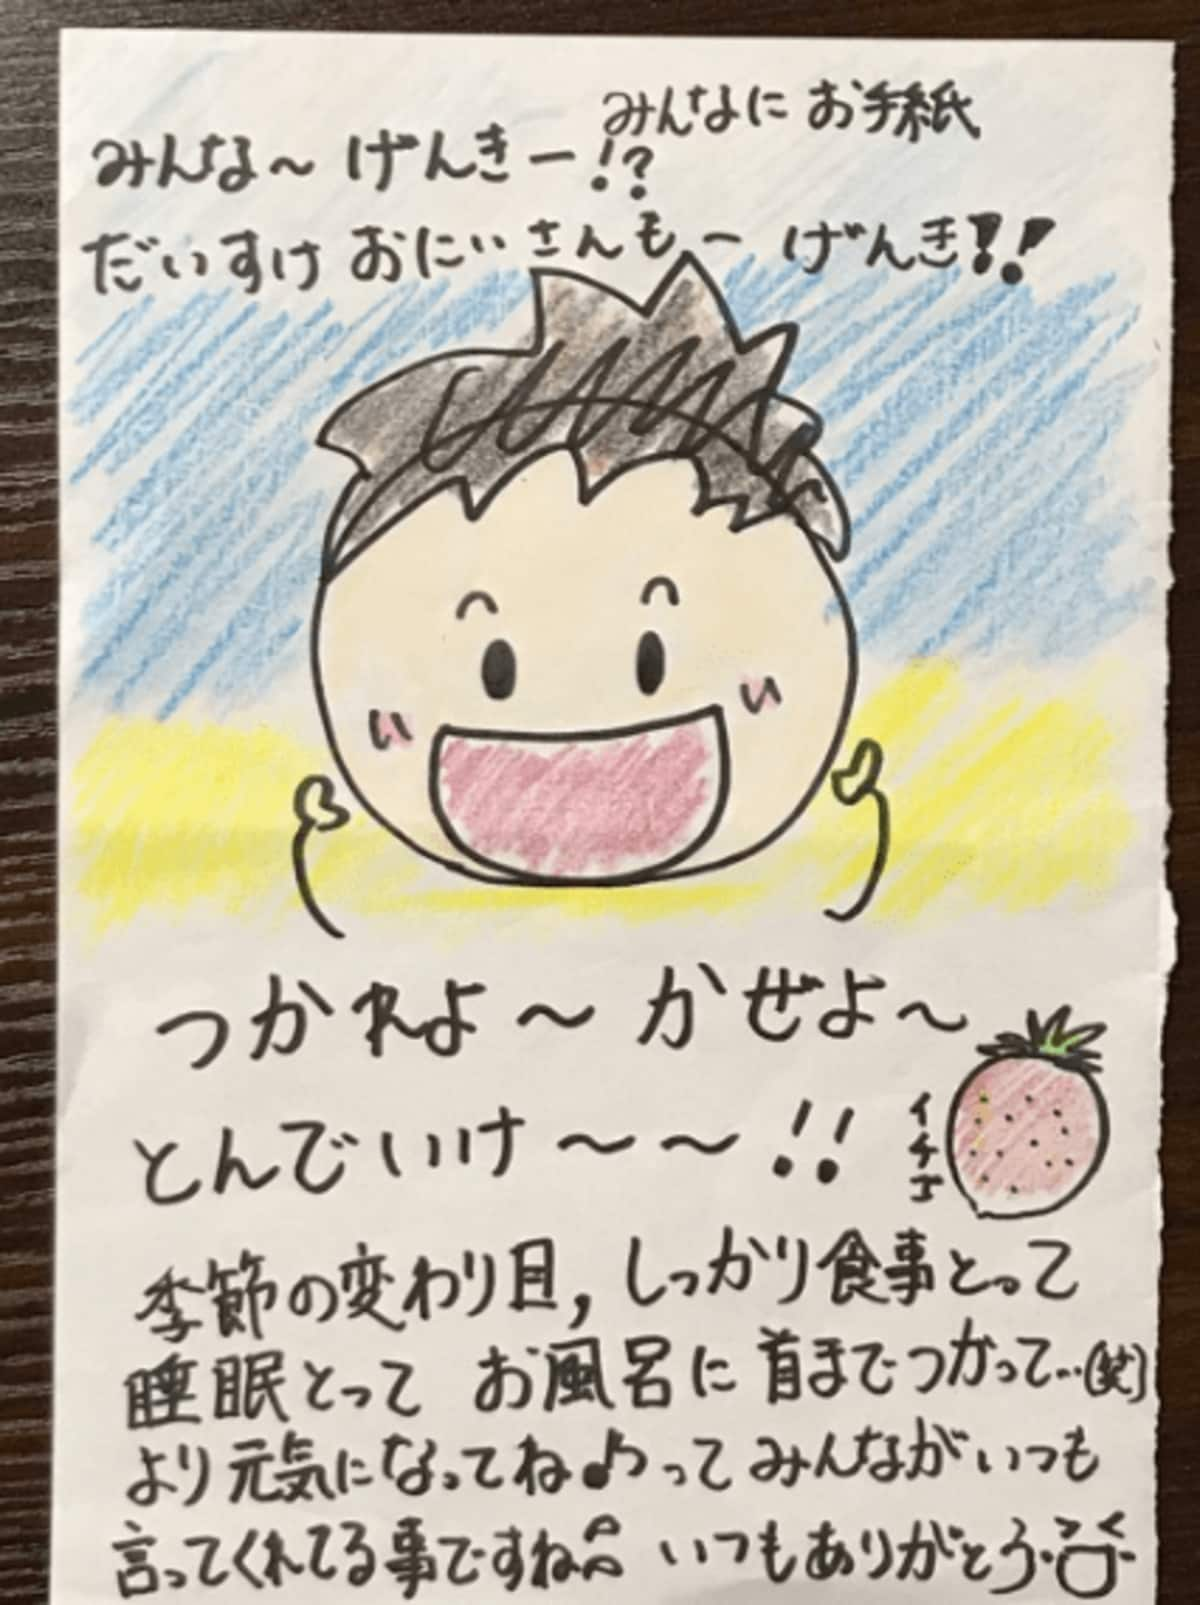 みんなに お手紙
みんな〜 げんきー!?
だいすけ おにいさんもー げんき!!
つかれよ〜 かぜよ〜
とんでいけ〜〜!!
イチゴ
季節の変わり目, しっかり食事とって
睡眠とって お風呂に 首までつかって…(笑)
より元気になってね♪って みんながいつも
言ってくれてる事ですね いつもありがとう